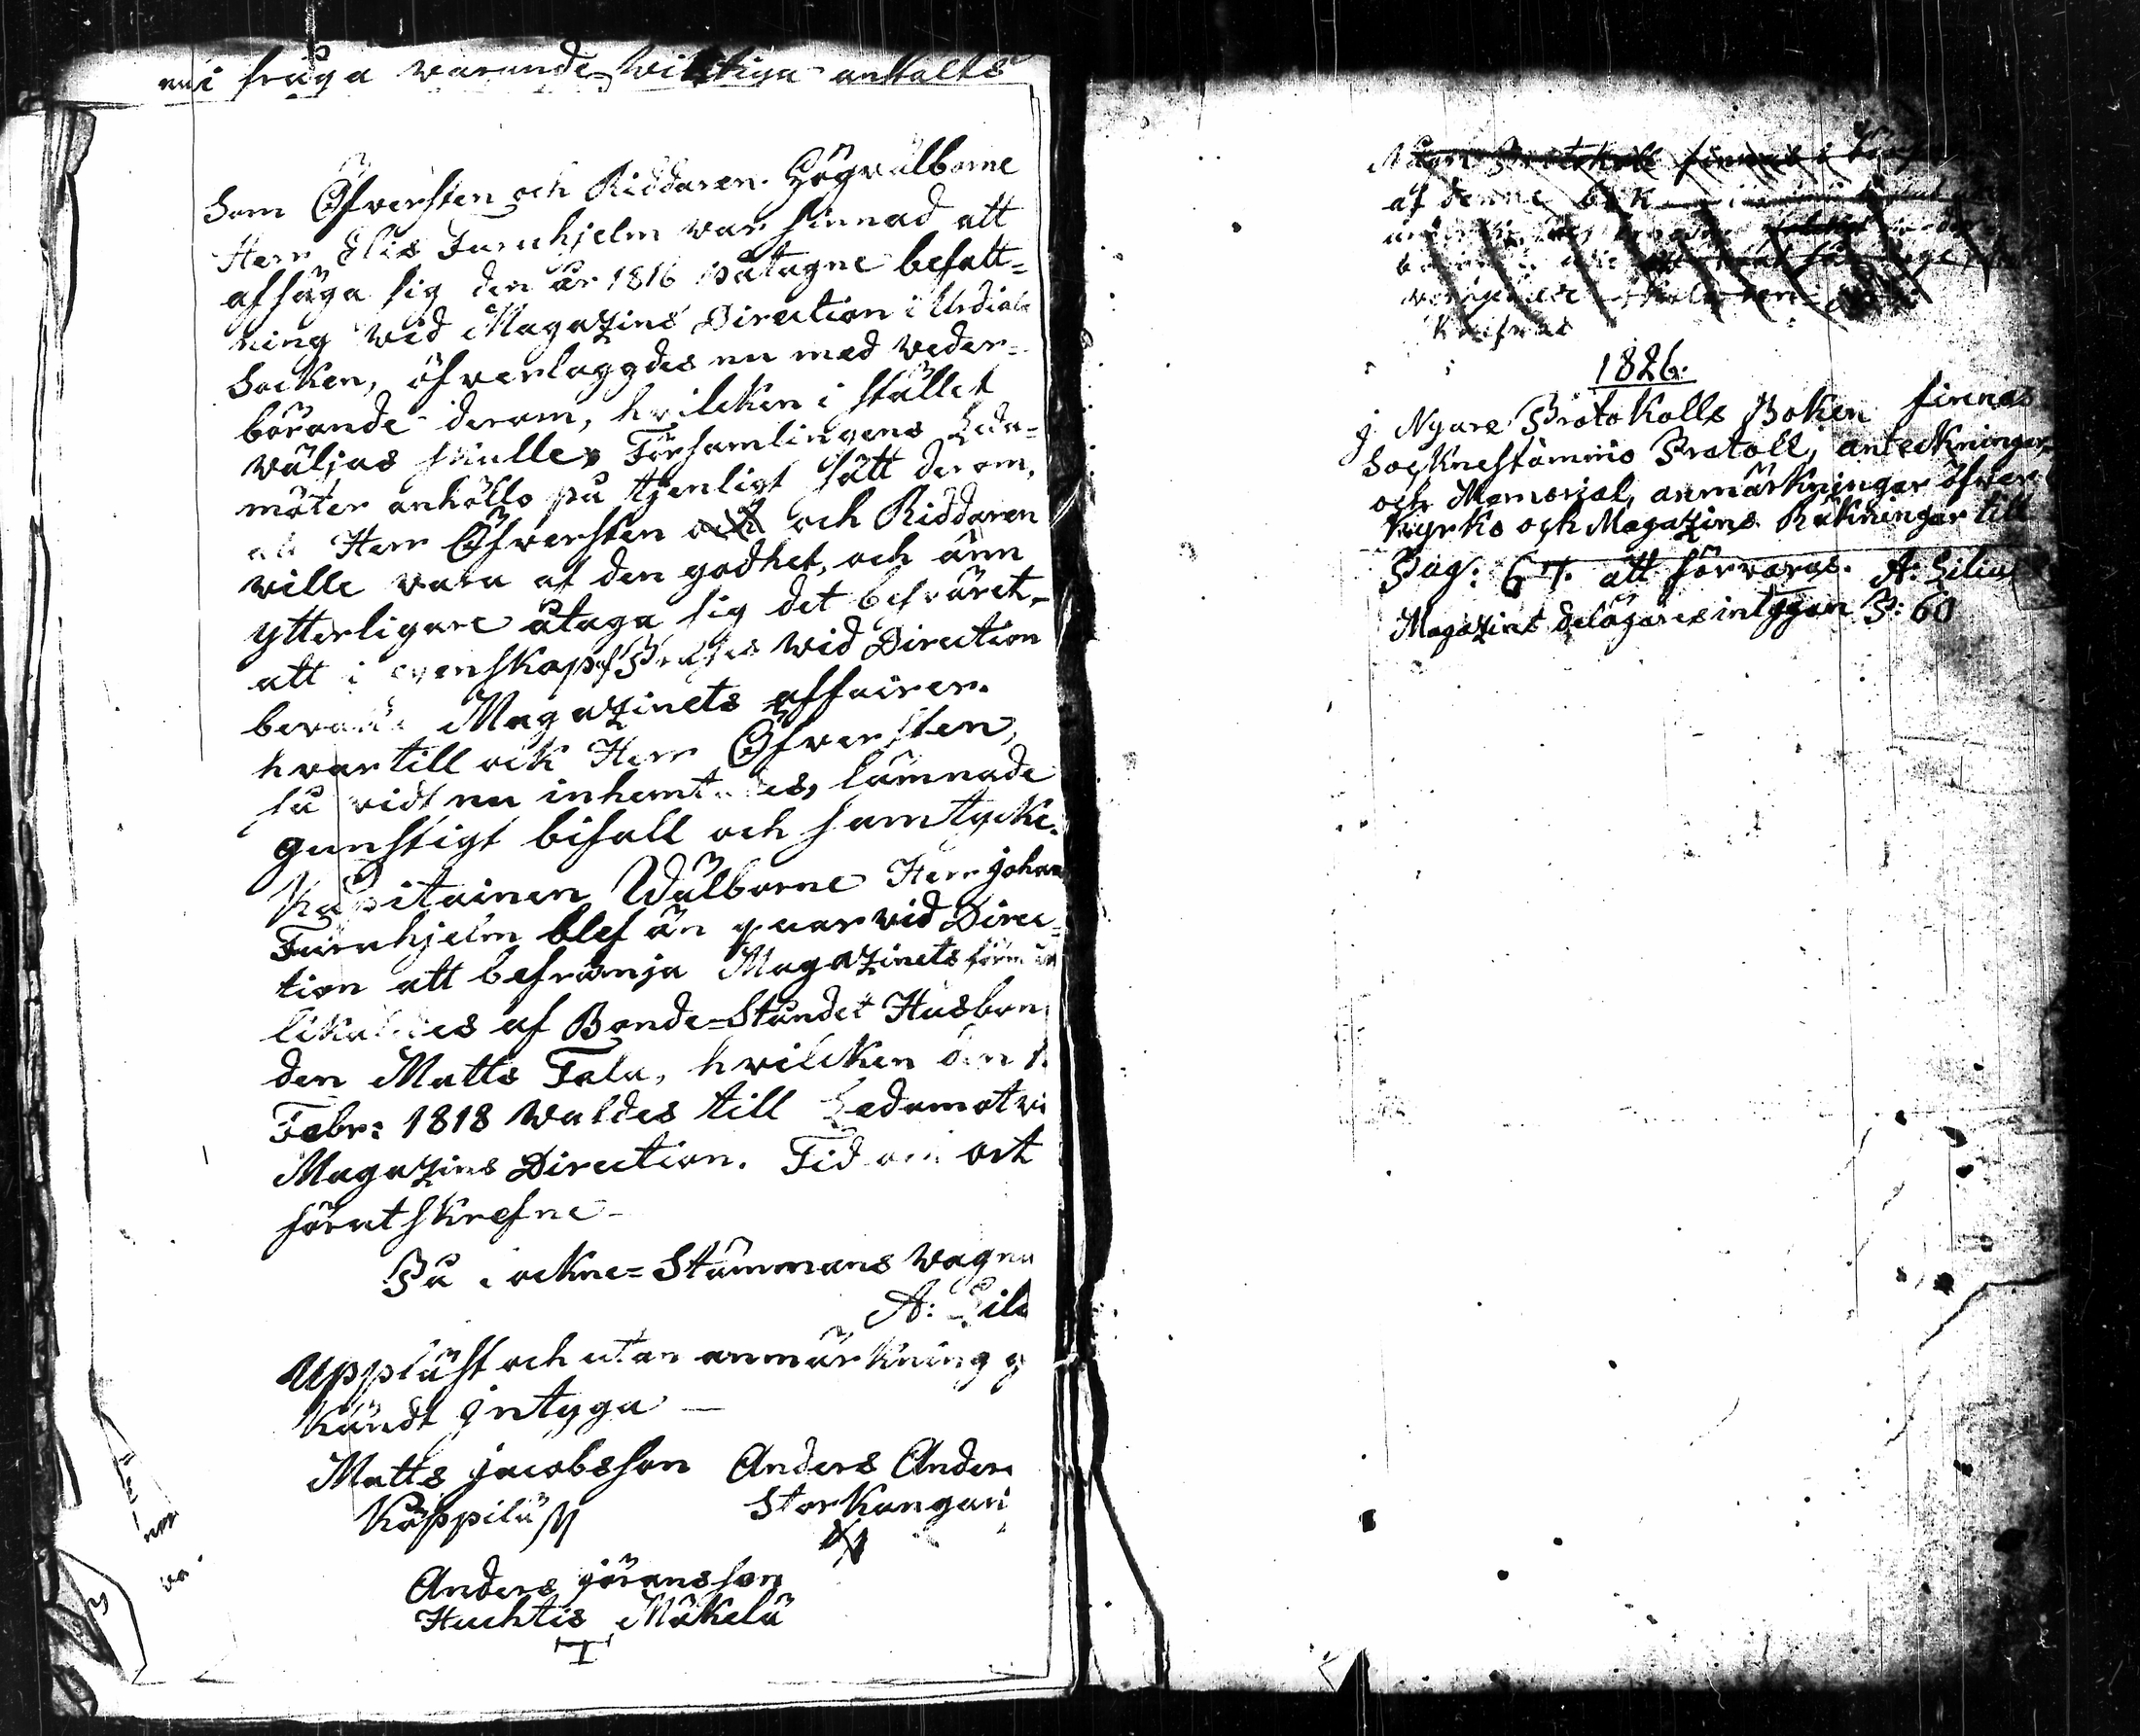 i fråga warande wiktiga anstalts
Som Öfversten och Riddaren Högvälborne
Herr Elis Furuhjelm war sinnad att
afsäga sig den år 1816 påtagne befatt=
ning wid Magazins Direction i Urdiala
Socken, öfverlaggdes nu med veder=
börande derom, hvilcken i stället
wäljas skulle; Församlingens Leda=
möter anhöllo på tjenligt sätt derom,
att Herr Öfversten och Riddaren
ville vara af den godhet, och änn
ytterligare åtaga sig det besväret,
att i egenskap af Præses wid Direction
bevaka Magazinets affairer.
hvartill ock Herr Öfversten,
så vidt nu inhemtades, lämnade
gunstigt bifall och samtycke.
Kapitainen Wälborne Herr Johan
Furuhjelm blef än quar vid Direc=
tion att befrämja Magazinets
likaledes af Bonde=Ståndet Husbon
den Matts Tala, hvilcken den 1.
Febr: 1818 waldes till Ledamot vi
Magazins Direction. Tid och ort
förutskrefne—
På Sockne=Stämmans wagna
A: Lili
Uppläst och utan anmärkning g
kändt Intyga —
Matts Jacobsson Anders Anders
Käppilä Storkangari
Anders Göransson
Huchtis Mäkelä
Protokoll finnas i
af denne bok
1826.
J Nyare Protokolls Boken finnas
Socknestämmo Protoll, anteckningar,
och Memorial, anmärkningar öfver
Kyrko och Magazins Räkningar till
Pag: 67. att förvaras. A: Lilius
Magazins delägares intygan P: 60